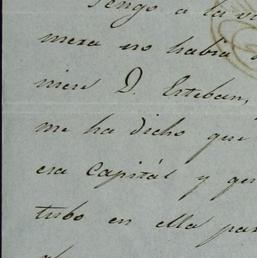 Tengo a la vi
mera no habia
niere D. Esteban,
me ha dicho que
era Capitál y que
tubo en ella par